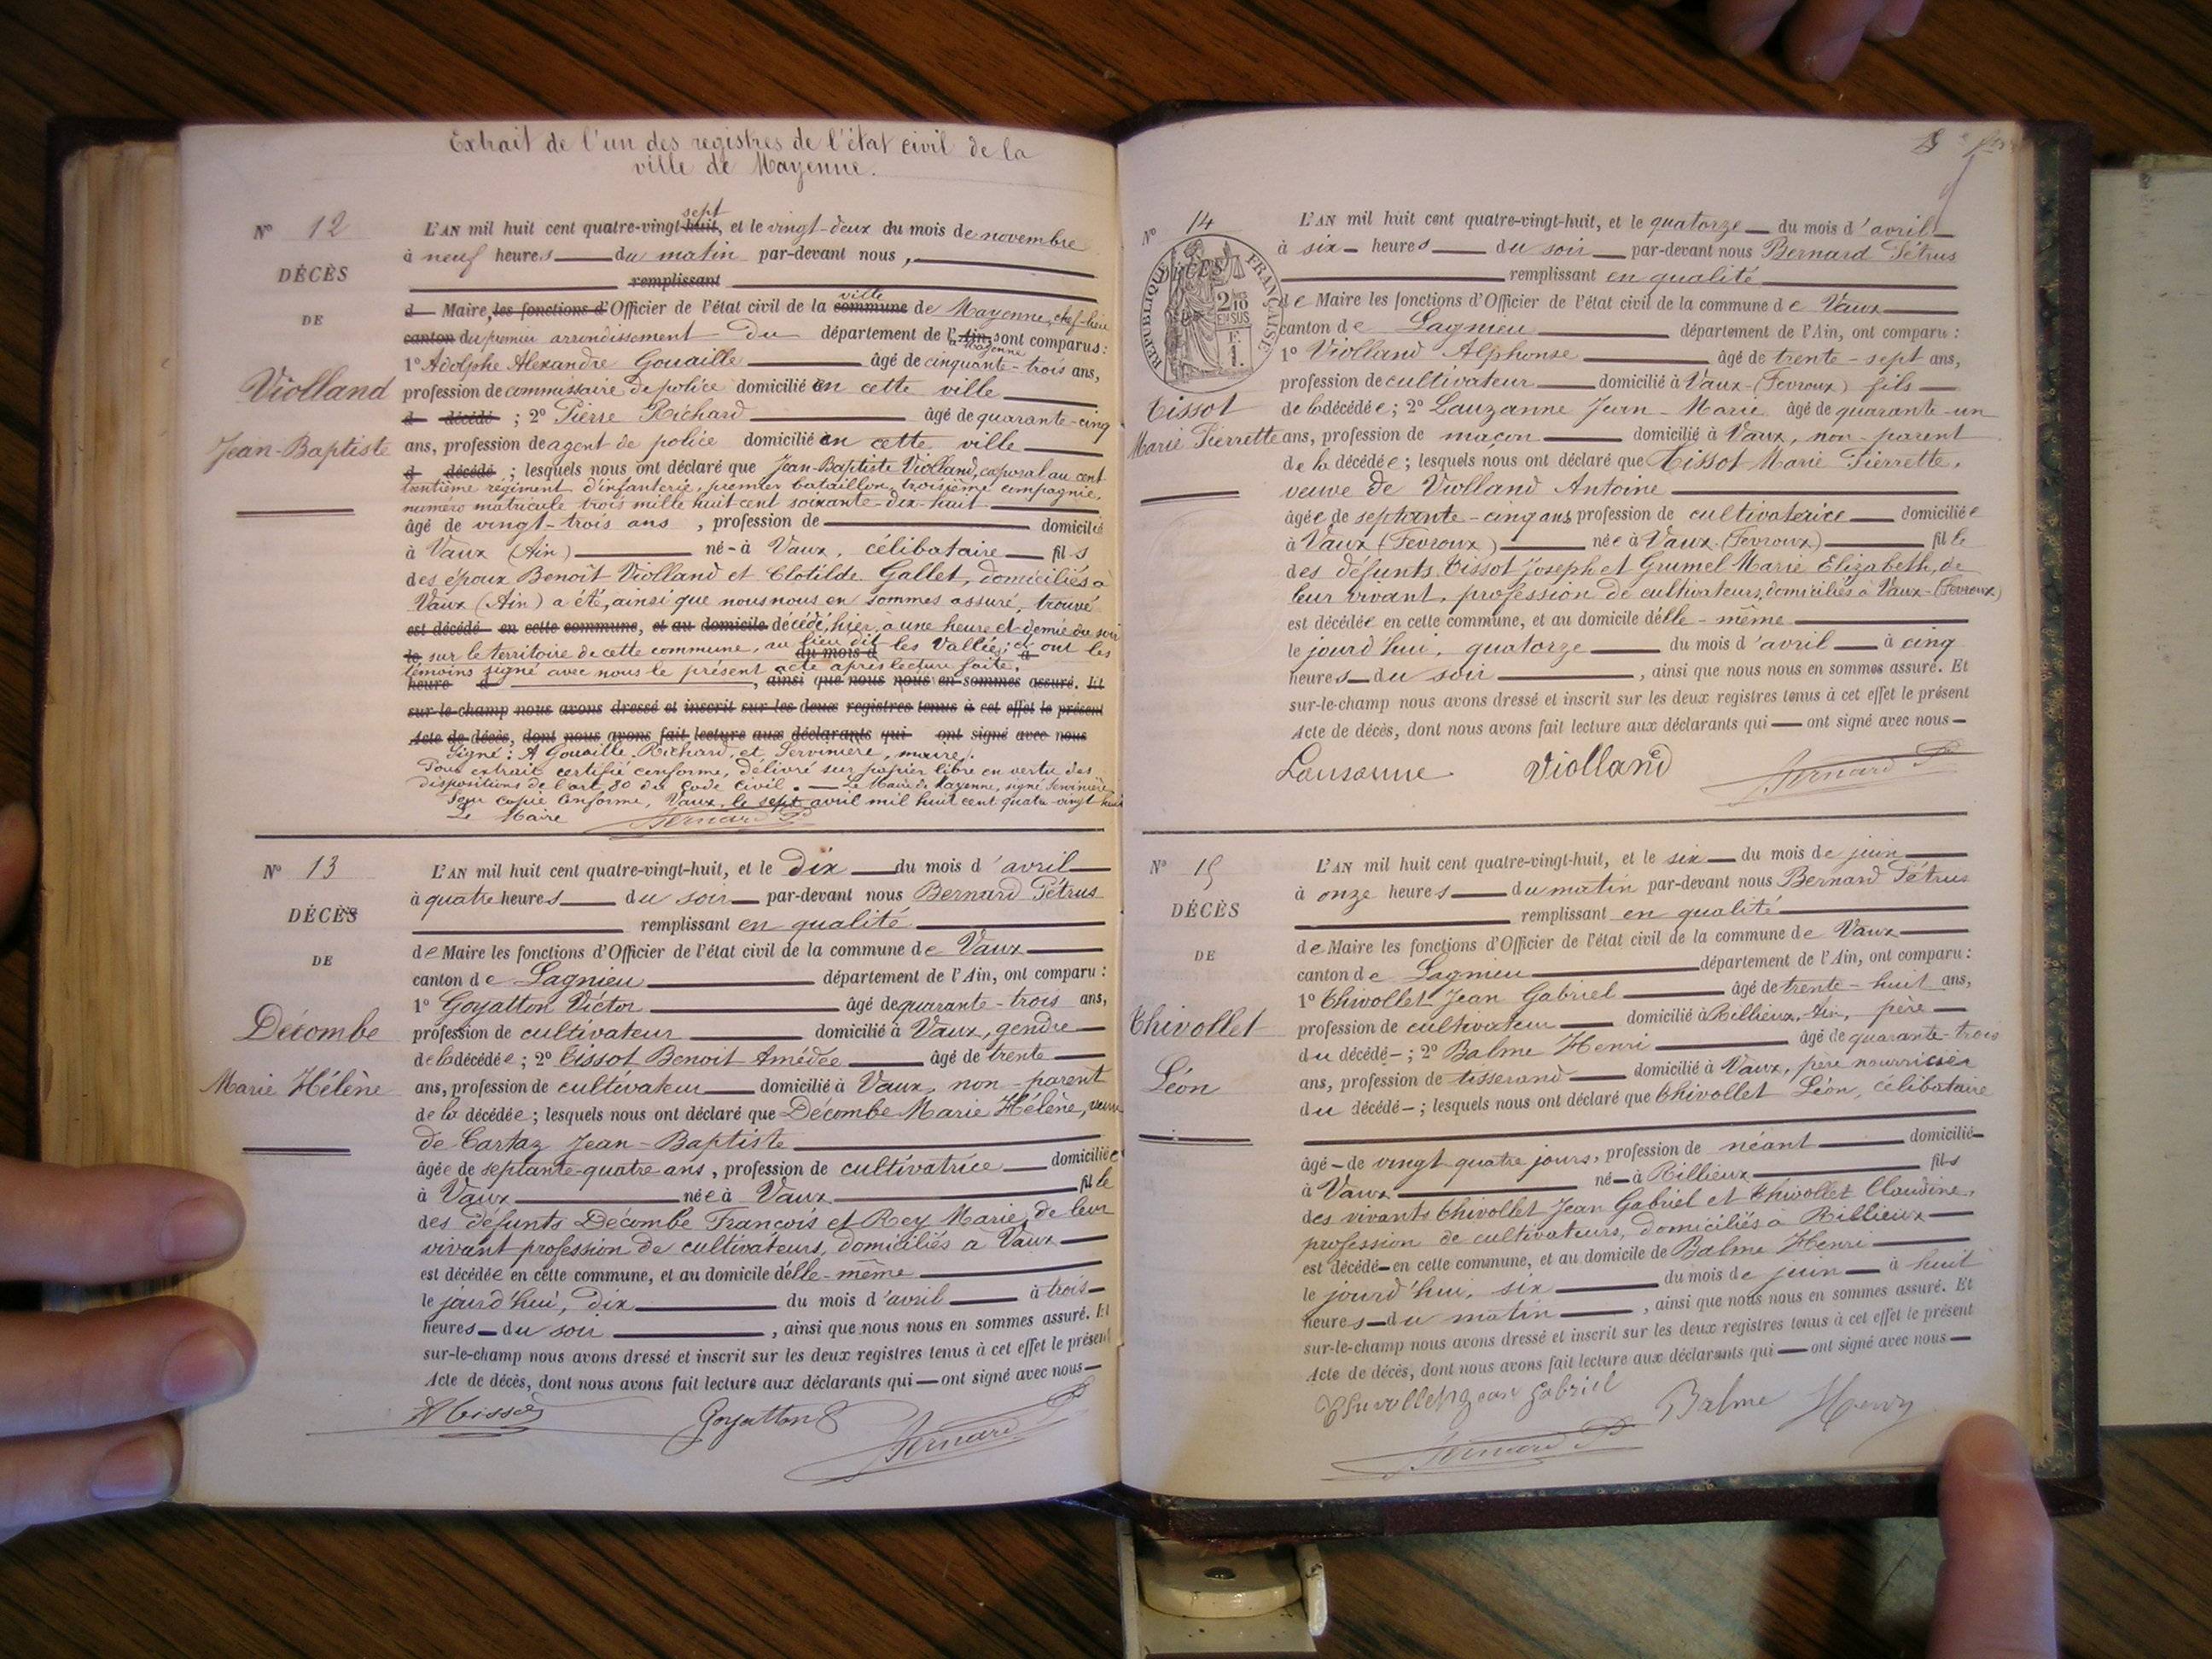 Extrait de l'un des registres de l'état civil de la
ville de Mayenne.
N° 12
DÉCÈS
DE
Violland
Jean-Baptiste
L'AN mil huit cent quatre-vingt-huit, sept et le vingt-deux du mois de novembre
à neuf heures du matin par-devant nous,
remplissant
d Maire, les fonctions d'Officier de l'état civil de la commune ville de Mayenne, chef-lieu
canton du premier arrondissement du département de l'Ain, la Mayenne sont comparus :
1° Adolphe Alexandre Gouaille âgé de cinquante-trois ans,
profession de commissaire de police domicilié en cette ville
d décédé ; 2° Pierre Richard âgé de quarante-cinq
ans, profession de agent de police domicilié en cette ville
d décédé ; lesquels nous ont déclaré que Jean-Baptiste Violland, caporal au cent
trentième régiment d'infanterie, premier bataillon, troisième compagnie,
numéro matricule trois mille huit cent soixante-dix-huit
âgé de vingt-trois ans, profession de domicilié
à Vaux (Ain) né à Vaux, célibataire fils
des époux Benoît Violland et Clotilde Gallet, domiciliés à
Vaux (Ain) a été, ainsi que nous nous en sommes assuré, trouvé
est décédé en cette commune, et au domicile décédé, hier, à une heure et demie du soir
le sur le territoire de cette commune, au lieu dit les Vallées ; et ont les
du mois d à
témoins signé avec nous le présent acte après lecture faite.
heure d , ainsi que nous nous en sommes assuré. Et
sur-le-champ nous avons dressé et inscrit sur les deux registres tenus à cet effet le présent
Acte de décès, dont nous avons fait lecture aux déclarants qui ont signé avec nous
Signé : A Gouaille, Richard, et Servinière, maire.
Pour extrait certifié conforme, délivré sur papier libre en vertu des
dispositions de l'art. 80 du Code civil. — Le Maire de Mayenne, signé Servinière
Pour copie conforme, Vaux, le sept avril mil huit cent quatre-vingt-huit
Le Maire Bernard P
N° 13
DÉCÈS
DE
Décombe
Marie Hélène
L'AN mil huit cent quatre-vingt-huit, et le dix du mois d'avril
à quatre heures du soir par-devant nous Bernard Pétrus
remplissant en qualité
de Maire les fonctions d'Officier de l'état civil de la commune de Vaux
canton de Lagnieu département de l'Ain, ont comparu :
1° Goyatton Victor âgé de quarante-trois ans,
profession de cultivateur domicilié à Vaux, gendre
de la décédée ; 2° Tissot Benoit Amédée âgé de trente
ans, profession de cultivateur domicilié à Vaux, non-parent
de la décédée ; lesquels nous ont déclaré que Décombe Marie Hélène, veuve
de Cartaz Jean-Baptiste
âgée de septante-quatre ans, profession de cultivatrice domiciliée
à Vaux née à Vaux fille
des défunts Décombe François et Rey Marie, de leur
vivant profession de cultivateurs, domiciliés à Vaux
est décédée en cette commune, et au domicile d'elle-même
le jourd'hui, dix du mois d'avril à trois
heures du soir , ainsi que nous nous en sommes assuré. Et
sur-le-champ nous avons dressé et inscrit sur les deux registres tenus à cet effet le présent
Acte de décès, dont nous avons fait lecture aux déclarants qui — ont signé avec nous —
Tissot Goyatton Bernard P
N° 14
DÉCÈS
RÉPUBLIQUE FRANÇAISE
2/10 EN SUS
F. 1.
Tissot
Marie Pierrette
L'AN mil huit cent quatre-vingt-huit, et le quatorze du mois d'avril
à six heures du soir par-devant nous Bernard Pétrus
remplissant en qualité
de Maire les fonctions d'Officier de l'état civil de la commune de Vaux
canton de Lagnieu département de l'Ain, ont comparu :
1° Violland Alphonse âgé de trente-sept ans,
profession de cultivateur domicilié à Vaux-(Fevroux) fils
de la décédée ; 2° Lauzanne Jean-Marie âgé de quarante-un
ans, profession de maçon domicilié à Vaux, non-parent
de la décédée ; lesquels nous ont déclaré que Tissot Marie Pierrette,
veuve de Violland Antoine
âgée de septante-cinq ans profession de cultivatrice domiciliée
à Vaux (Fevroux) née à Vaux (Fevroux) fille
des défunts Tissot Joseph et Grumel Marie Elizabeth, de
leur vivant, profession de cultivateurs, domiciliés à Vaux-(Fevroux)
est décédée en cette commune, et au domicile d'elle-même
le jourd'hui, quatorze du mois d'avril à cinq
heures du soir , ainsi que nous nous en sommes assuré. Et
sur-le-champ nous avons dressé et inscrit sur les deux registres tenus à cet effet le présent
Acte de décès, dont nous avons fait lecture aux déclarants qui — ont signé avec nous —
Lausanne Violland Bernard P
N° 15
DÉCÈS
DE
Thivollet
Léon
L'AN mil huit cent quatre-vingt-huit, et le six du mois de juin
à onze heures du matin par-devant nous Bernard Pétrus
remplissant en qualité
de Maire les fonctions d'Officier de l'état civil de la commune de Vaux
canton de Lagnieu département de l'Ain, ont comparu :
1° Thivollet Jean Gabriel âgé de trente-huit ans,
profession de cultivateur domicilié à Rillieux, Ain, père
du décédé ; 2° Balme Henri âgé de quarante-trois
ans, profession de tisserand domicilié à Vaux, père nourricier
du décédé ; lesquels nous ont déclaré que Thivollet Léon, célibataire
âgé de vingt quatre jours, profession de néant domicilié
à Vaux né à Rillieux fils
des vivants Thivollet Jean Gabriel et Thivollet Claudine,
profession de cultivateurs, domiciliés à Rillieux
est décédé en cette commune, et au domicile de Balme Henri
le jourd'hui, six du mois de juin à huit
heures du matin , ainsi que nous nous en sommes assuré. Et
sur-le-champ nous avons dressé et inscrit sur les deux registres tenus à cet effet le présent
Acte de décès, dont nous avons fait lecture aux déclarants qui — ont signé avec nous —
Thivollet Jean Gabriel Balme Henry
Bernard P